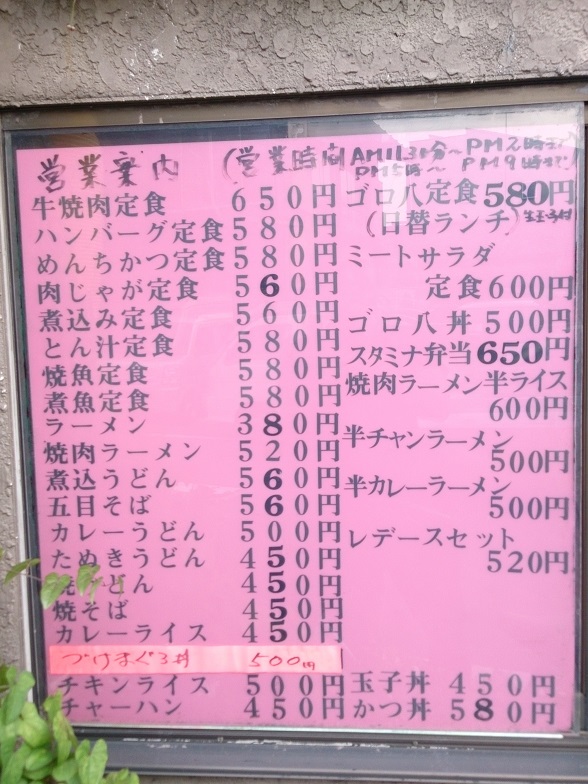 営業案内 (営業時間 AM11.3分～PM2時まで
PM5時～PM9時まで)
牛焼肉定食 650円
ハンバーグ定食 580円
めんちかつ定食 580円
肉じゃが定食 560円
煮込み定食 560円
とん汁定食 580円
焼魚定食 580円
煮魚定食 580円
ラーメン 380円
焼肉ラーメン 520円
煮込うどん 560円
五目そば 560円
カレーうどん 500円
たぬきうどん 450円
焼うどん 450円
焼そば 450円
カレーライス 450円
づけまぐろ丼 500円
チキンライス 500円
チャーハン 450円
ゴロ八定食 580円
(日替ランチ) 生玉子付
ミートサラダ
定食 600円
ゴロ八丼 500円
スタミナ弁当 650円
焼肉ラーメン半ライス
600円
半チャンラーメン
500円
半カレーラーメン
500円
レデースセット
520円
玉子丼 450円
かつ丼 580円